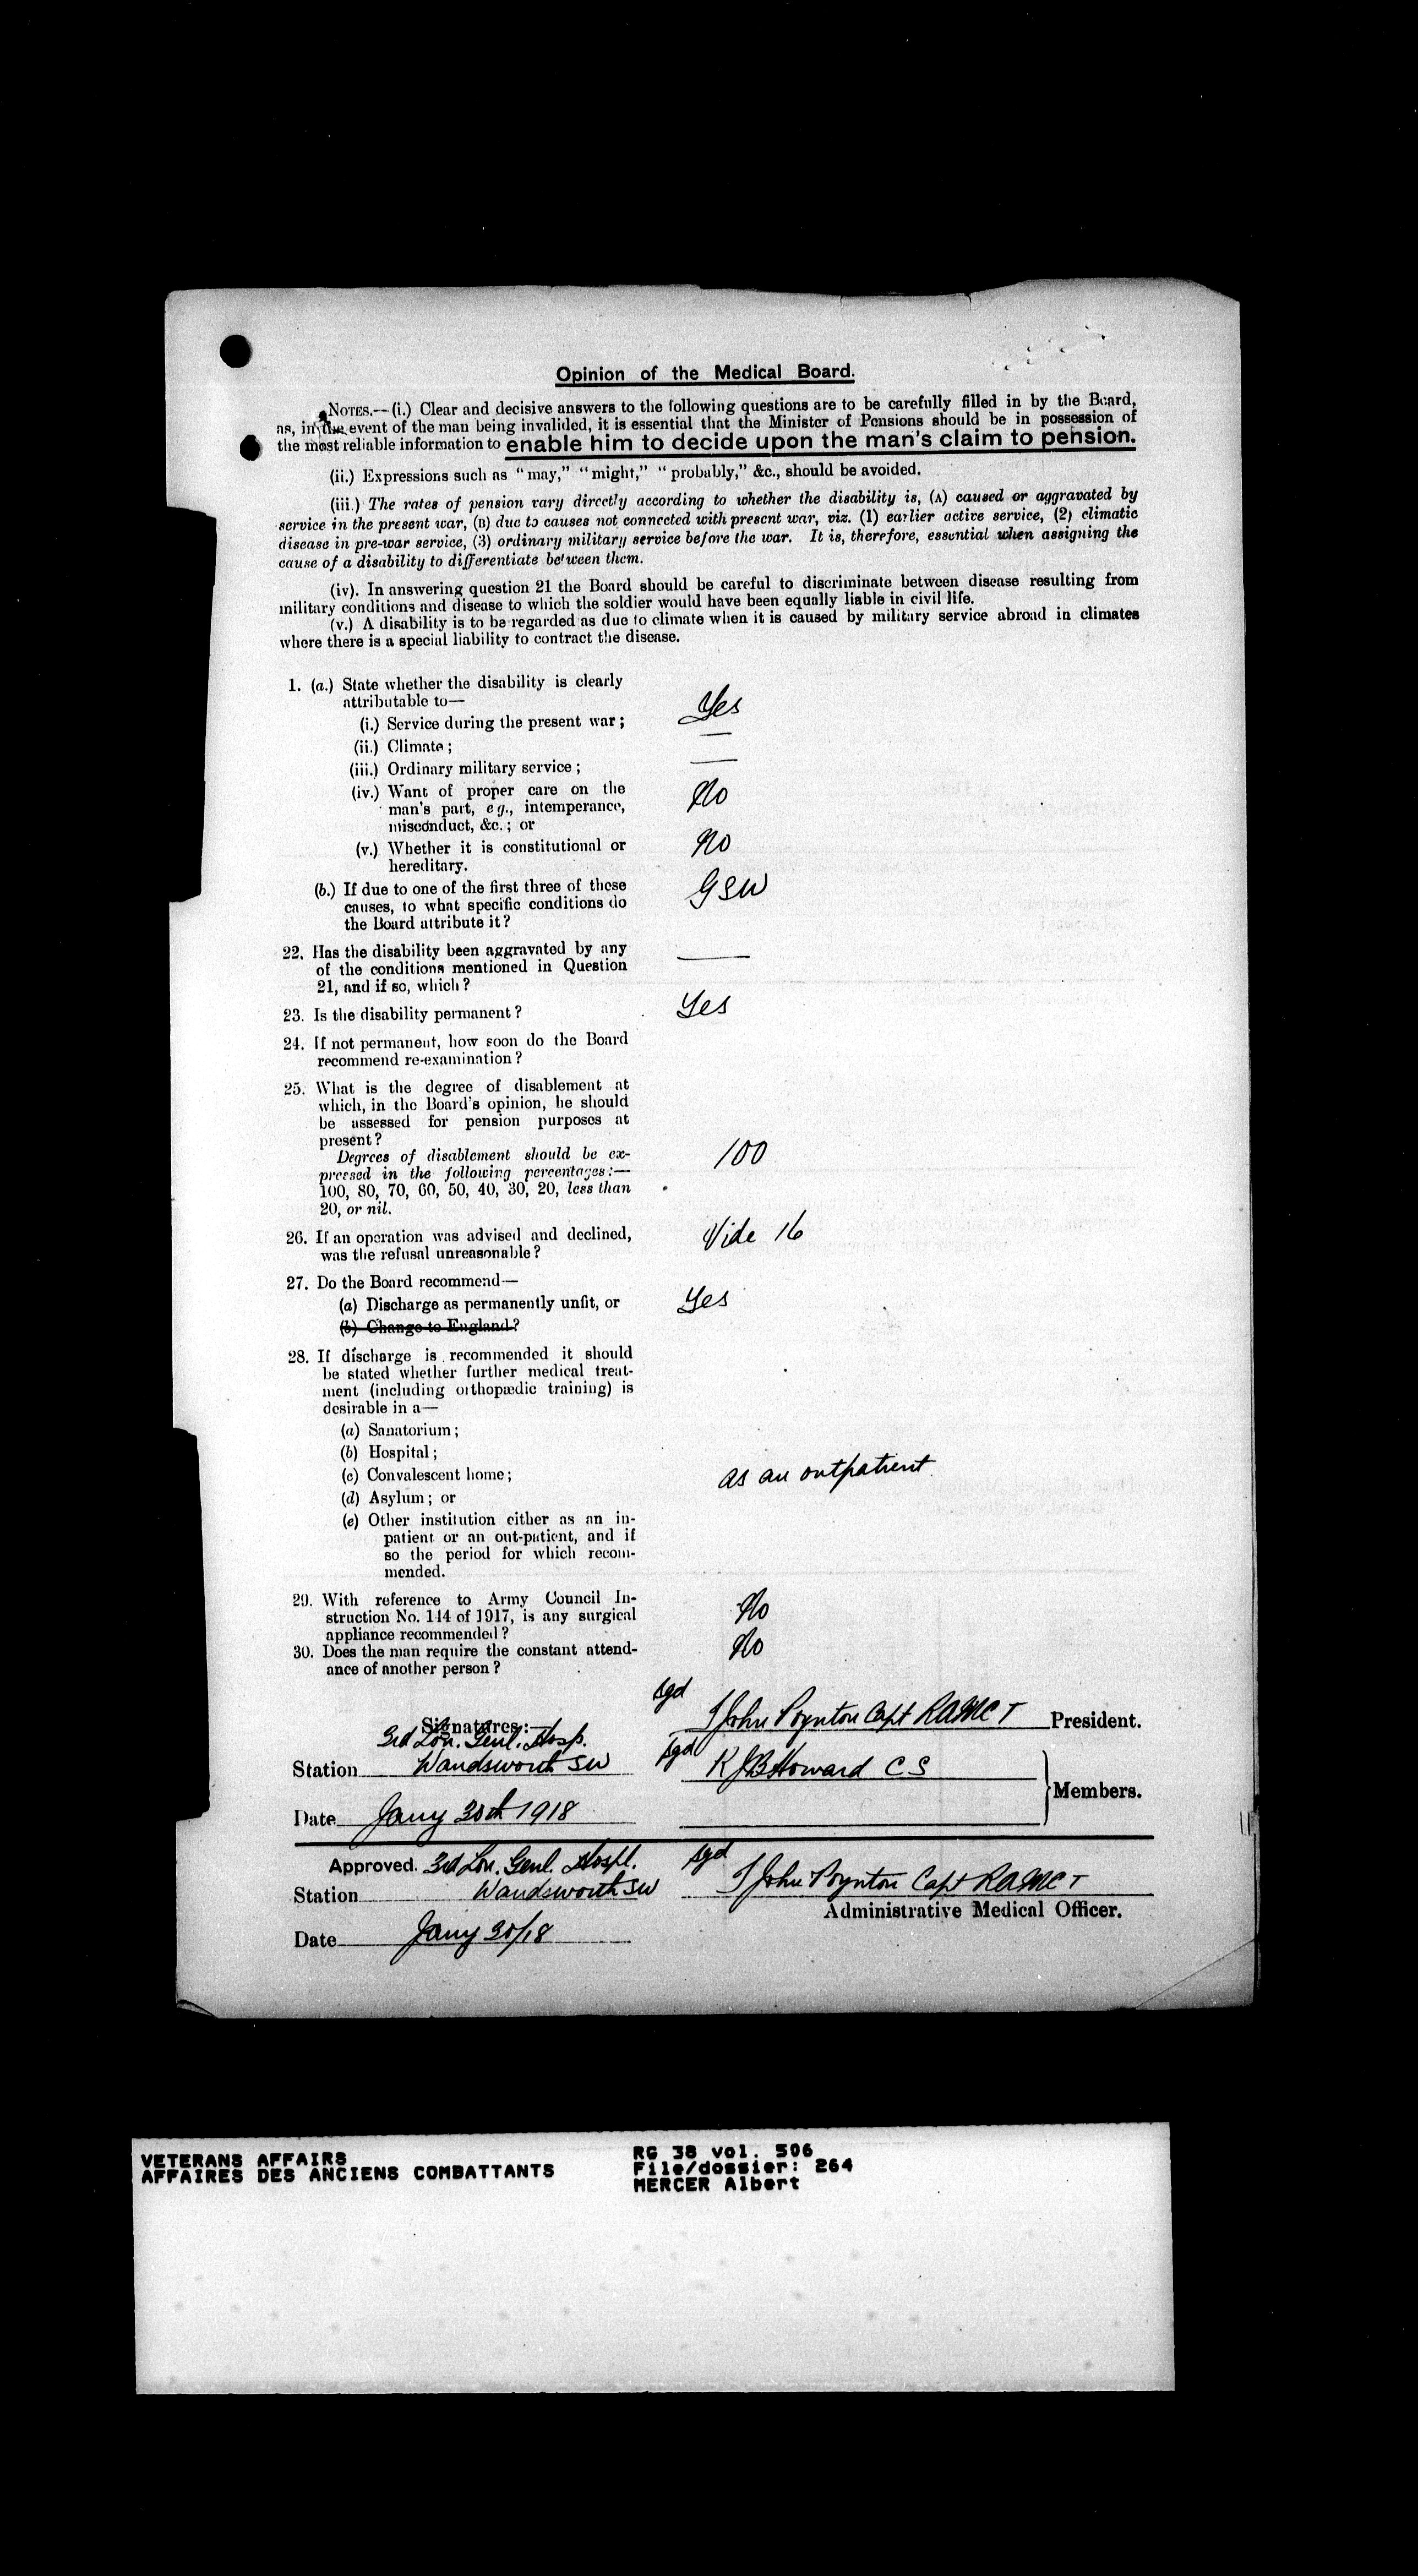 Opinion of the Medical Board.
NOTES.—(i.) Clear and decisive answers to the following questions are to be carefully filled in by the Board,
as, in the event of the man being invalided, it is essential that the Minister of Pensions should be in possession of
the most reliable information to enable him to decide upon the man's claim to pension.
(ii.) Expressions such as "may," "might," "probably," &c., should be avoided.
(iii.) The rates of pension vary directly according to whether the disability is, (A) caused or aggravated by
service in the present war, (B) due to causes not connected with present war, viz. (1) earlier active service, (2) climatic
disease in pre-war service, (3) ordinary military service before the war. It is, therefore, essential when assigning the
cause of a disability to differentiate between them.
(iv). In answering question 21 the Board should be careful to discriminate between disease resulting from
military conditions and disease to which the soldier would have been equally liable in civil life.
(v.) A disability is to be regarded as due to climate when it is caused by military service abroad in climates
where there is a special liability to contract the disease.
1. (a.) State whether the disability is clearly
attributable to—
(i.) Service during the present war; Yes
(ii.) Climate; —
(iii.) Ordinary military service; —
(iv.) Want of proper care on the No
man's part, eg., intemperance,
misconduct, &c.; or
(v.) Whether it is constitutional or No
hereditary.
(b.) If due to one of the first three of these GSW
causes, to what specific conditions do
the Board attribute it?
22. Has the disability been aggravated by any —
of the conditions mentioned in Question
21, and if so, which?
23. Is the disability permanent? Yes
24. If not permanent, how soon do the Board
recommend re-examination?
25. What is the degree of disablement at
which, in the Board's opinion, he should
be assessed for pension purposes at
present?
Degrees of disablement should be ex- 100
pressed in the following percentages:—
100, 80, 70, 60, 50, 40, 30, 20, less than
20, or nil.
26. If an operation was advised and declined, Vide 16
was the refusal unreasonable?
27. Do the Board recommend—
(a) Discharge as permanently unfit, or Yes
(b) Change to England?
28. If discharge is recommended it should
be stated whether further medical treat-
ment (including orthopædic training) is
desirable in a—
(a) Sanatorium;
(b) Hospital;
(c) Convalescent home; as an outpatient
(d) Asylum; or
(e) Other institution either as an in-
patient or an out-patient, and if
so the period for which recom-
mended.
29. With reference to Army Council In- No
struction No. 144 of 1917, is any surgical
appliance recommended?
30. Does the man require the constant attend- No
ance of another person?
Signatures:— sgd F John Poynton Capt RAMC T President.
3rd Lon. Genl. Hosp.
Station Wandsworth SW sgd R J B Howard C S
Members.
Date Jany 30th 1918
Approved. 3rd Lon. Genl. Hospl.
Station Wandsworth SW sgd F John Poynton Capt RAMC T
Administrative Medical Officer.
Date Jany 30/18
VETERANS AFFAIRS RG 38 vol. 506
AFFAIRES DES ANCIENS COMBATTANTS File/dossier: 264
MERCER Albert